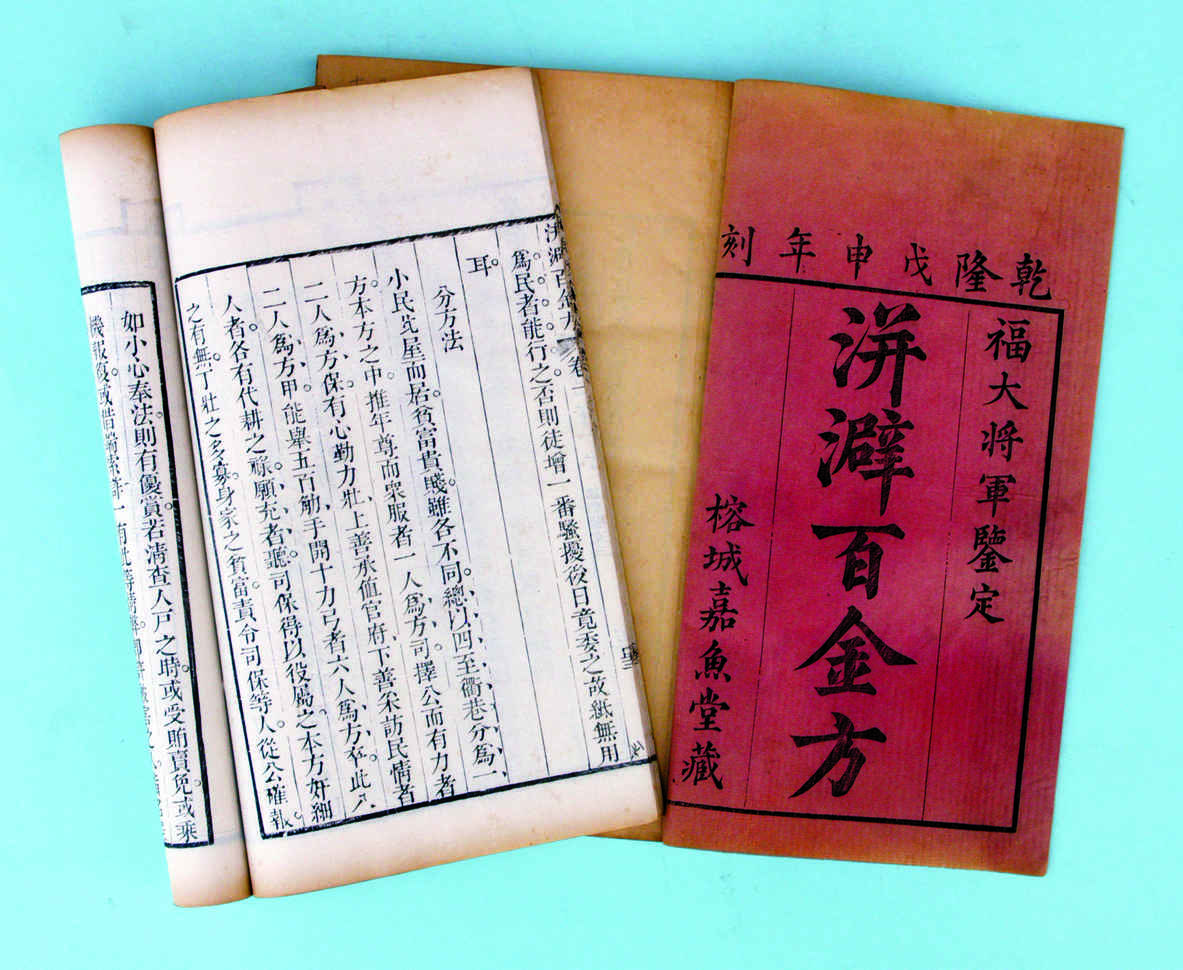 乾隆戊申年刻
福大將軍鑒定
洴澼百金方
榕城嘉魚堂藏
洴澼百金方 卷一
爲民者能行之否則徒增一番騷擾後日竟委之故紙無用
耳
分方法
小民比屋而居貧富貴賤雖各不同總以四至衢巷分爲一
方本方之中推年尊而衆服者一人爲方司擇公而有力者
二人爲方保有心勤力壯上善承値官府下善采訪民情者
二人爲方甲能舉五百觔手開十力弓者六人爲方卒此八
人者各有代耕之祿願充者聽司保得以役屬之本方奸細
之有無丁壯之多寡身家之貧富責令司保等人從公確報
如小心奉法則有優賞若清查人戶之時或受賄賣免或乘
機報